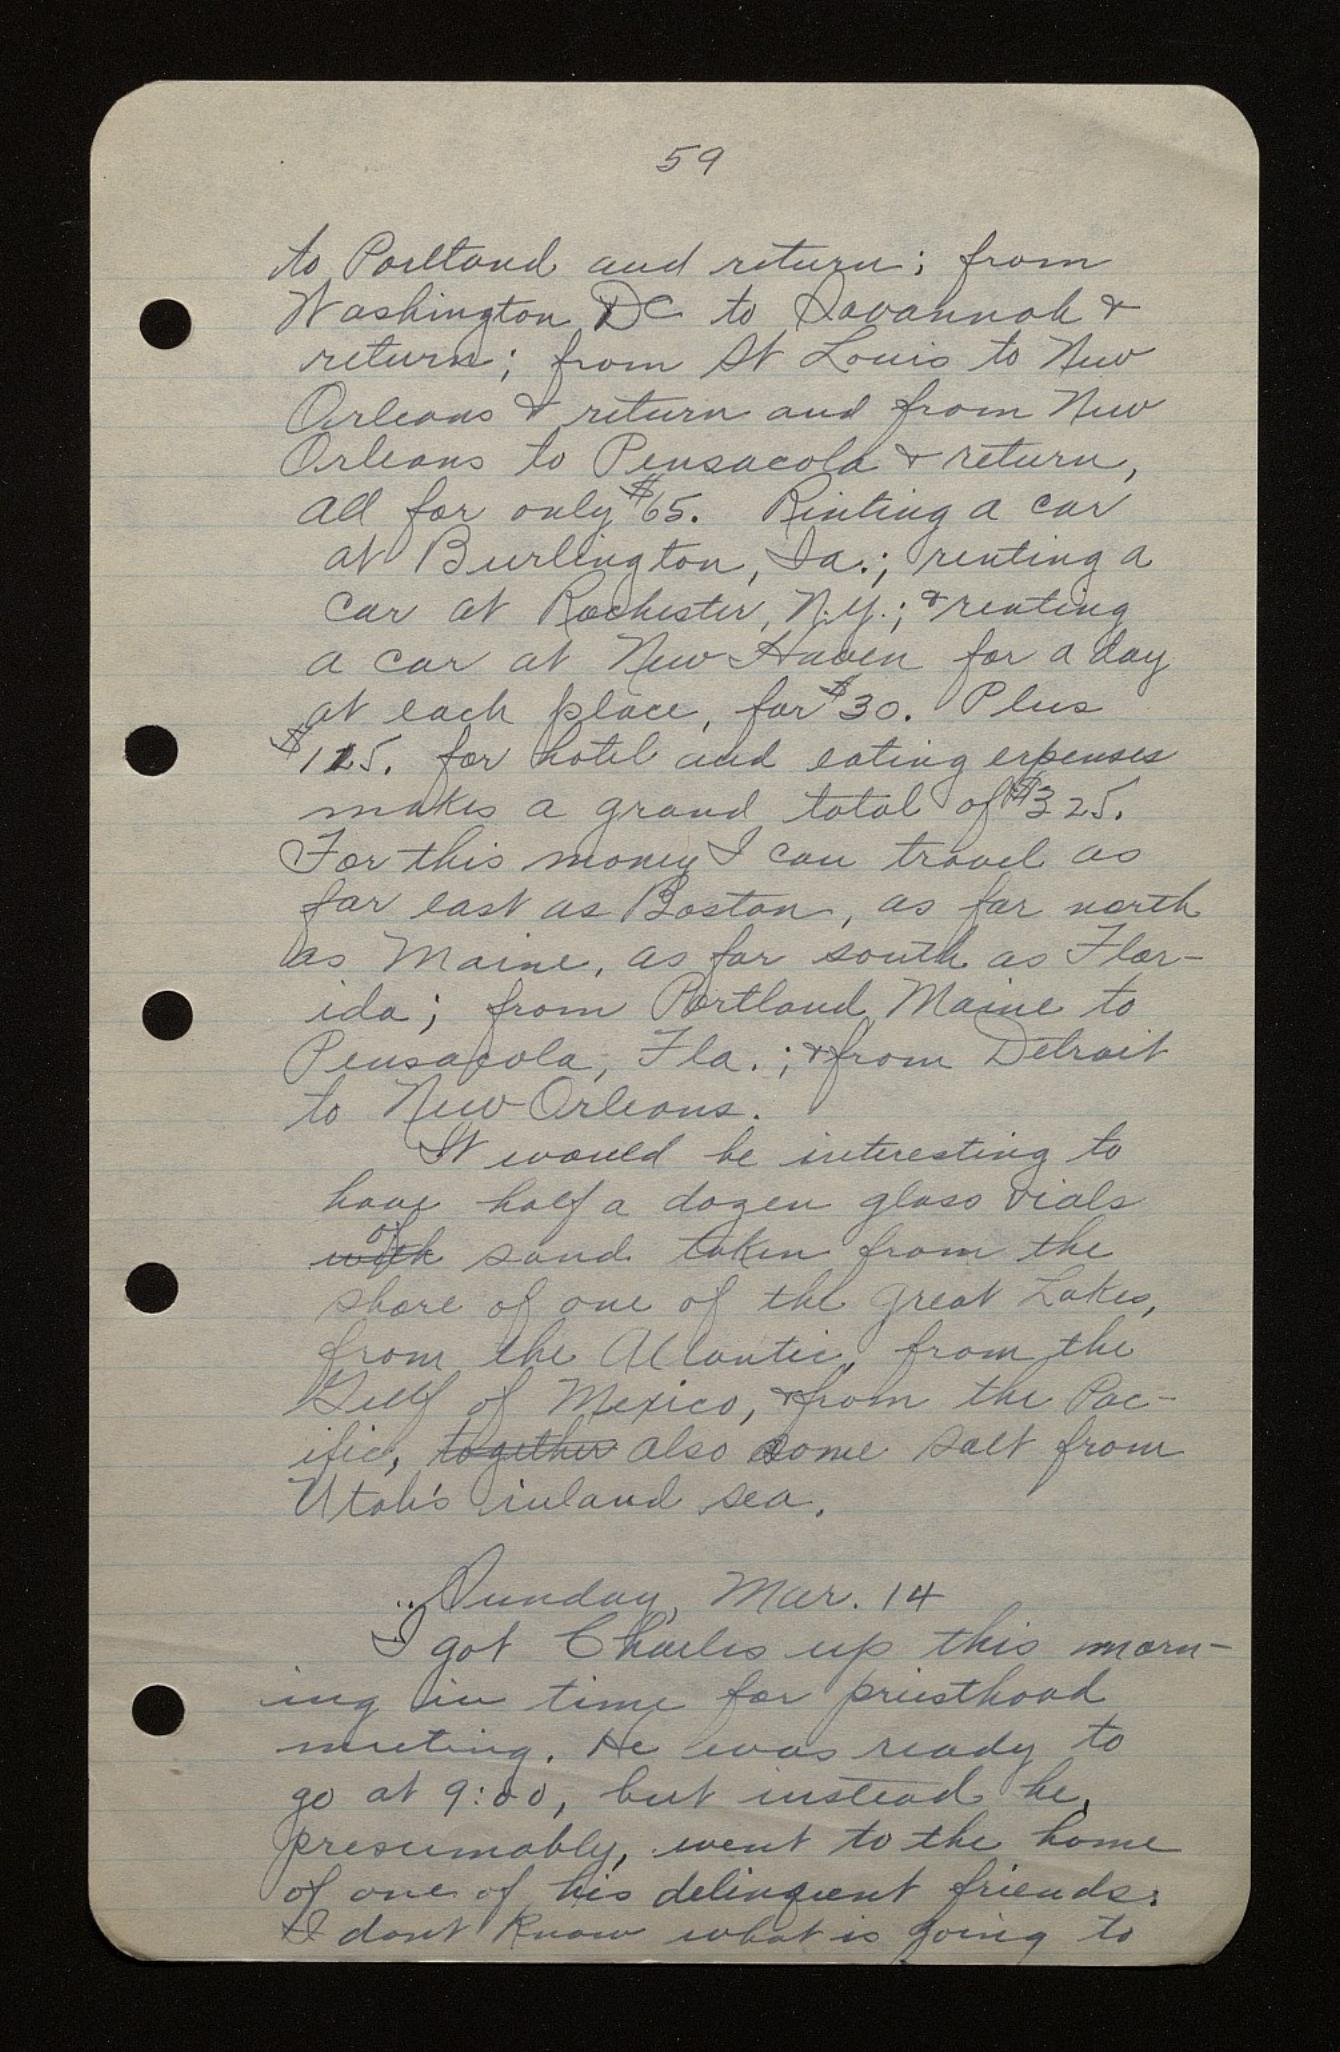 59
to Portland and return; from
Washington DC to Savannah &
return; from St Louis to New
Orleans & return and from New
Orleans to Pensacola & return,
all for only $65. Rinting a car
at Burlington, Ia.; renting a
car at Rochester, N.Y.; & renting
a car at New Haven for a day
at each place, for $30. Plus
$125. for hotel and eating expenses
makes a grand total of $325.
For this money I can travel as
far east as Boston, as far north
as Maine, as far south as Flor-
ida; from Portland Maine to
Pensacola, Fla.; & from Detroit
to New Orleans.
It would be interesting to
have half a dozen glass vials
with of sand taken from the
shore of one of the great Lakes,
from the Atlantic, from the
Gulf of Mexico, & from the Pac-
ific, together also some salt from
Utah's inland sea.
Sunday, Mar. 14
I got Charles up this morn-
ing in time for priesthood
meeting. He was ready to
go at 9:00, but instead he,
presumably, went to the home
of one of his delinquent friends.
I dont know what is going to